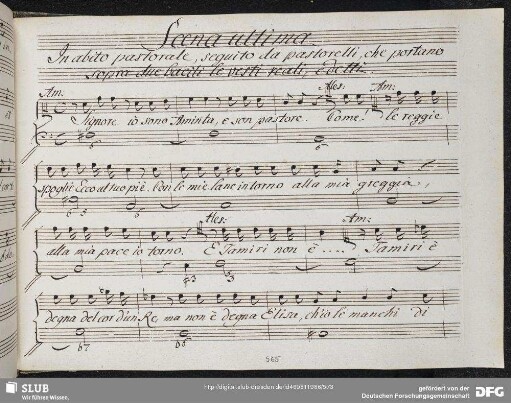 Scena ultima
In abito pastorale, seguito da pastorelli, che portano
sopra due bacili le vesti reali, e detti.
Am: Ales: Am:
Signore io sono Aminta, e son pastore. Come! le reggie
spoglie Ecco al tuo piè. Con le mie lane intorno alla mia greggia,
Ales: Am:
alla mia pace io torno. E Tamiri non è .... Tamiri è
degna del cor d'un Re, ma non è degna Elisa, ch'io le manchi di
565
SLUB
Wir führen Wissen.
gefördert von der
Deutschen Forschungsgemeinschaft
DFG